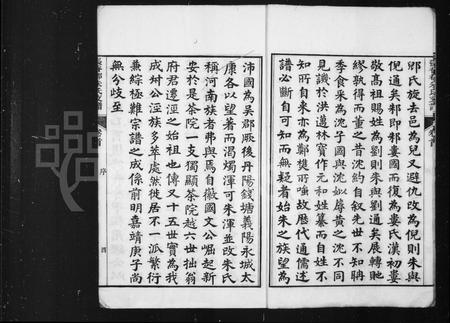 郳氏旋去邑為兒又避仇改為倪則朱與
倪通矣邾即邾婁國而復為婁氏漢初婁
敬高祖賜姓為劉則朱與劉通矣展轉
繆孰得而董之昔沈約自叙先世不知聃
季食采為沈子國與沈姒蓐黃之沈不同
見譏於洪邁林寶作元和姓纂而自姓不
知所自來亦為鄭樵所嗤故歷代通儒述
譜必斷自可知而無疑者始朱之族望為
沛國為吳郡厥後丹陽錢塘義陽永城太
康各以望著而渴燭渾可朱渾並改朱氏
稱河南族者弗與焉自徽國文公崛起新
安於是茶院一支獨顯茶院越六世拙翁
府君遷涇之始祖也傳又十五世實為我
成州公涇族多萃處然徙居不一派繁衍
兼綜極難宗譜之成係前明嘉靖庚子尚
無分歧至
序
卷首